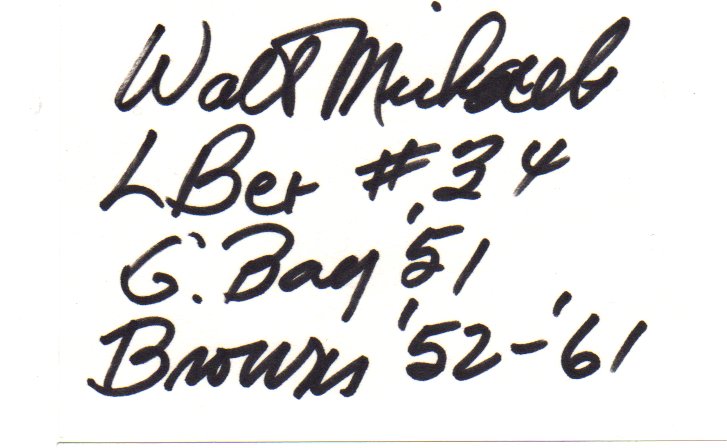 Walt Michaels
LBer #34
G. Bay '51
Browns '52-'61